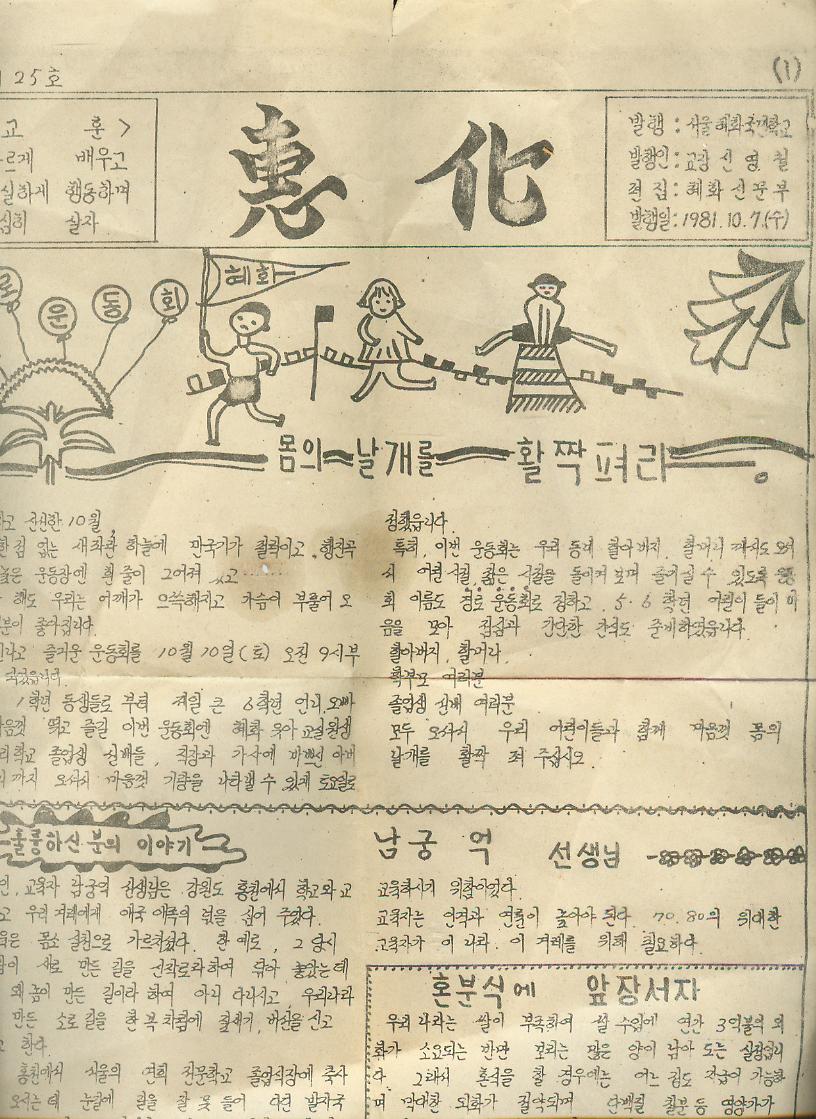 25호
(1)
고 훈 >
르게 배우고
실하게 행동하며
심히 살자
惠化
발행 : 서울혜화국민학교
발행인 : 교장 신영철
편집 : 혜화신문부
발행일 : 1981. 10. 7. (수)
운동회
혜화
몸의 날개를 활짝 펴라
고 선선한 10월,
한 점 없는 새파란 하늘에 만국기가 펄럭이고, 행진곡
높은 운동장엔 흰 줄이 그어져 있고……
해도 우리는 어깨가 으쓱해지고 가슴이 부풀어 오
분이 좋아집니다.
나고 즐거운 운동회를 10월 10일(토) 오전 9시부
되었습니다.
1학년 동생들로 부터 제일 큰 6학년 언니, 오빠
마음껏 뛰고 즐길 이번 운동회엔 혜화 유아 교실 원생
리학교 졸업생 선배들, 직장과 가사에 바쁘신 아버
까지 오셔서 마음껏 기량을 나타낼 수 있게 토요일로
정했습니다.
특히, 이번 운동회는 우리 동네 할아버지, 할머니 께서도 오셔
서 어린시절, 젊은 시절을 돌이켜 보며 즐기실 수 있도록 운동
회 이름도 경로 운동회로 정하고, 5·6학년 어린이들이 마
음을 모아 점심과 간단한 간식도 준비하였습니다.
할아버지, 할머니,
학부모 여러분
졸업생 선배 여러분
모두 오셔서 우리 어린이들과 함께 마음껏 몸의
날개를 활짝 펴 주십시오.
훌륭하신 분의 이야기
남궁 억 선생님
인, 교육자 남궁억 선생님은 강원도 홍천에서 학교와 교
고 우리 겨레에게 애국 애족의 얼을 심어 주었다.
은 몸소 실천으로 가르치셨다. 한 예로, 그 당시
이 새로 만든 길을 신작로라 하여 닦아 놓았는데
왜놈이 만든 길이라 하여 아니 다니시고, 우리나라
만든 소로길을 한복차림에 짚세기, 버선을 신고
고 한다.
홍천에서 서울의 연희 전문학교 졸업식장에 축사
오시는데 눈길에 길을 잘 못 들어 다닌 발자국
교육하시기 위함이었다.
교육자는 인격과 연륜이 높아야 된다. 70, 80의 위대한
교육자가 이 나라, 이 겨레를 위해 필요하다.
혼분식에 앞장서자
우리 나라는 쌀이 부족하여 쌀 수입에 연간 3억불의 외
화가 소요되는 반면 보리는 많은 양이 남아 도는 실정입니
다. 그래서 혼식을 할 경우에는 어느 정도 자급이 가능하
며 막대한 외화가 절약되며 단백질 칼슘 등 영양가가